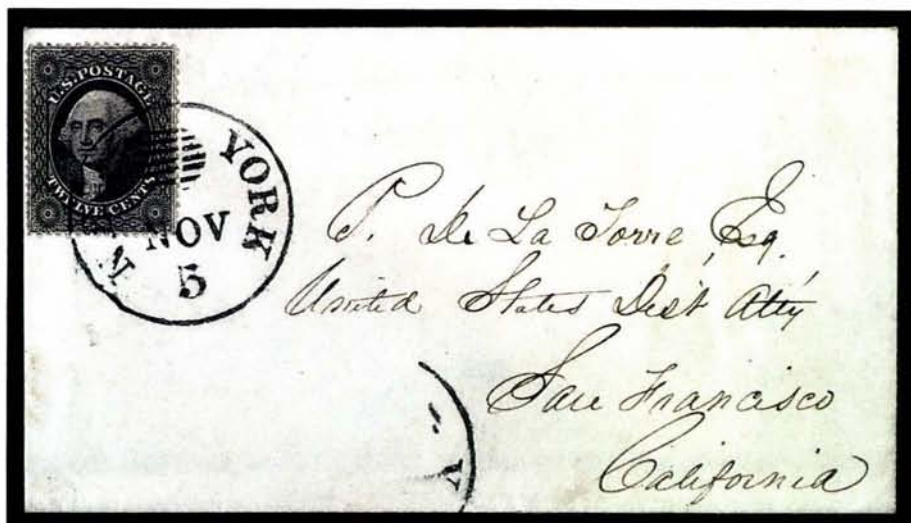 U.S. POSTAGE
TWELVE CENTS
N YORK
NOV
5
P. De La Torre, Esq.
United States Dist Atty
San Francisco
California